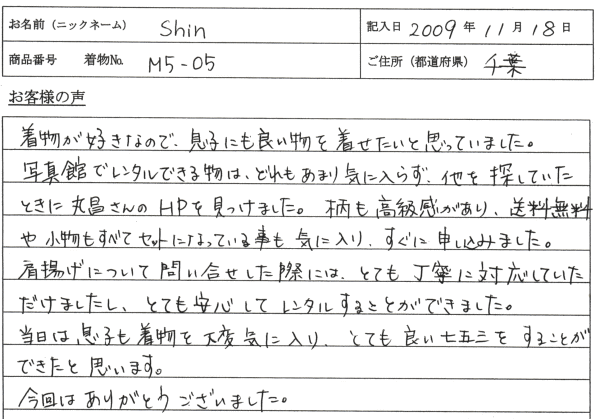 お名前（ニックネーム） Shin 記入日 2009 年 11 月 18 日
商品番号 着物No. M5-05 ご住所（都道府県） 千葉
お客様の声
着物が好きなので、息子にも良い物を着せたいと思っていました。
写真館でレンタルできる物は、どれもあまり気に入らず、他を探していた
ときに丸昌さんのHPを見つけました。柄も高級感があり、送料無料
や小物もすべてセットになっている事も気に入り、すぐに申し込みました。
肩揚げについて問い合せした際には、とても丁寧に対応していた
だけましたし、とても安心してレンタルすることができました。
当日は、息子も着物を大変気に入り、とても良い七五三をすることが
できたと思います。
今回はありがとうございました。